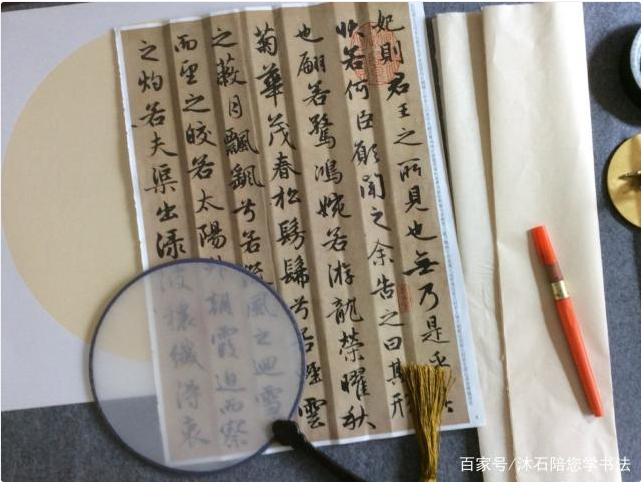 妃則君王之所見也無乃是乎
狀若何臣願聞之余告之曰其形
也翩若驚鴻婉若游龍榮曜秋
菊華茂春松髣髴兮若輕雲
之蔽月飄颻兮若流風之迴雪
而望之皎若太陽升朝霞迫而察
之灼若夫渠出淥波襛纖得衷
百家号/沐石陪您学书法